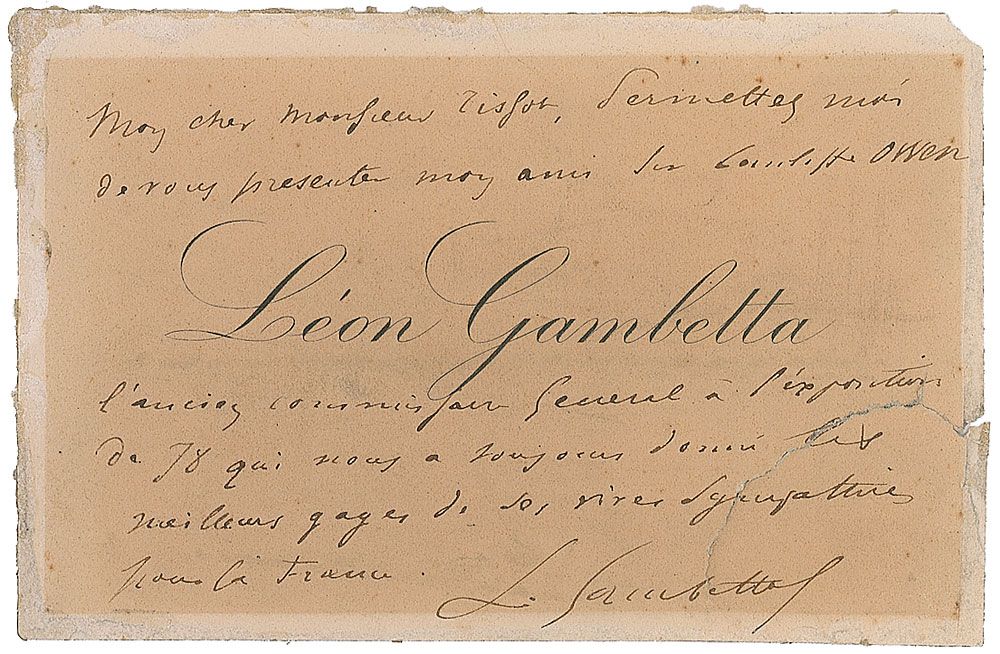 Mon cher Monsieur Tissot, Permettez moi
de vous presenter mon ami Sir Cunliffe Owen
Léon Gambetta
l'ancien commissaire General à l'exposition
de 78 qui nous a toujours donné les
meilleurs gages de ses vives sympathies
pour la France.
L. Gambetta